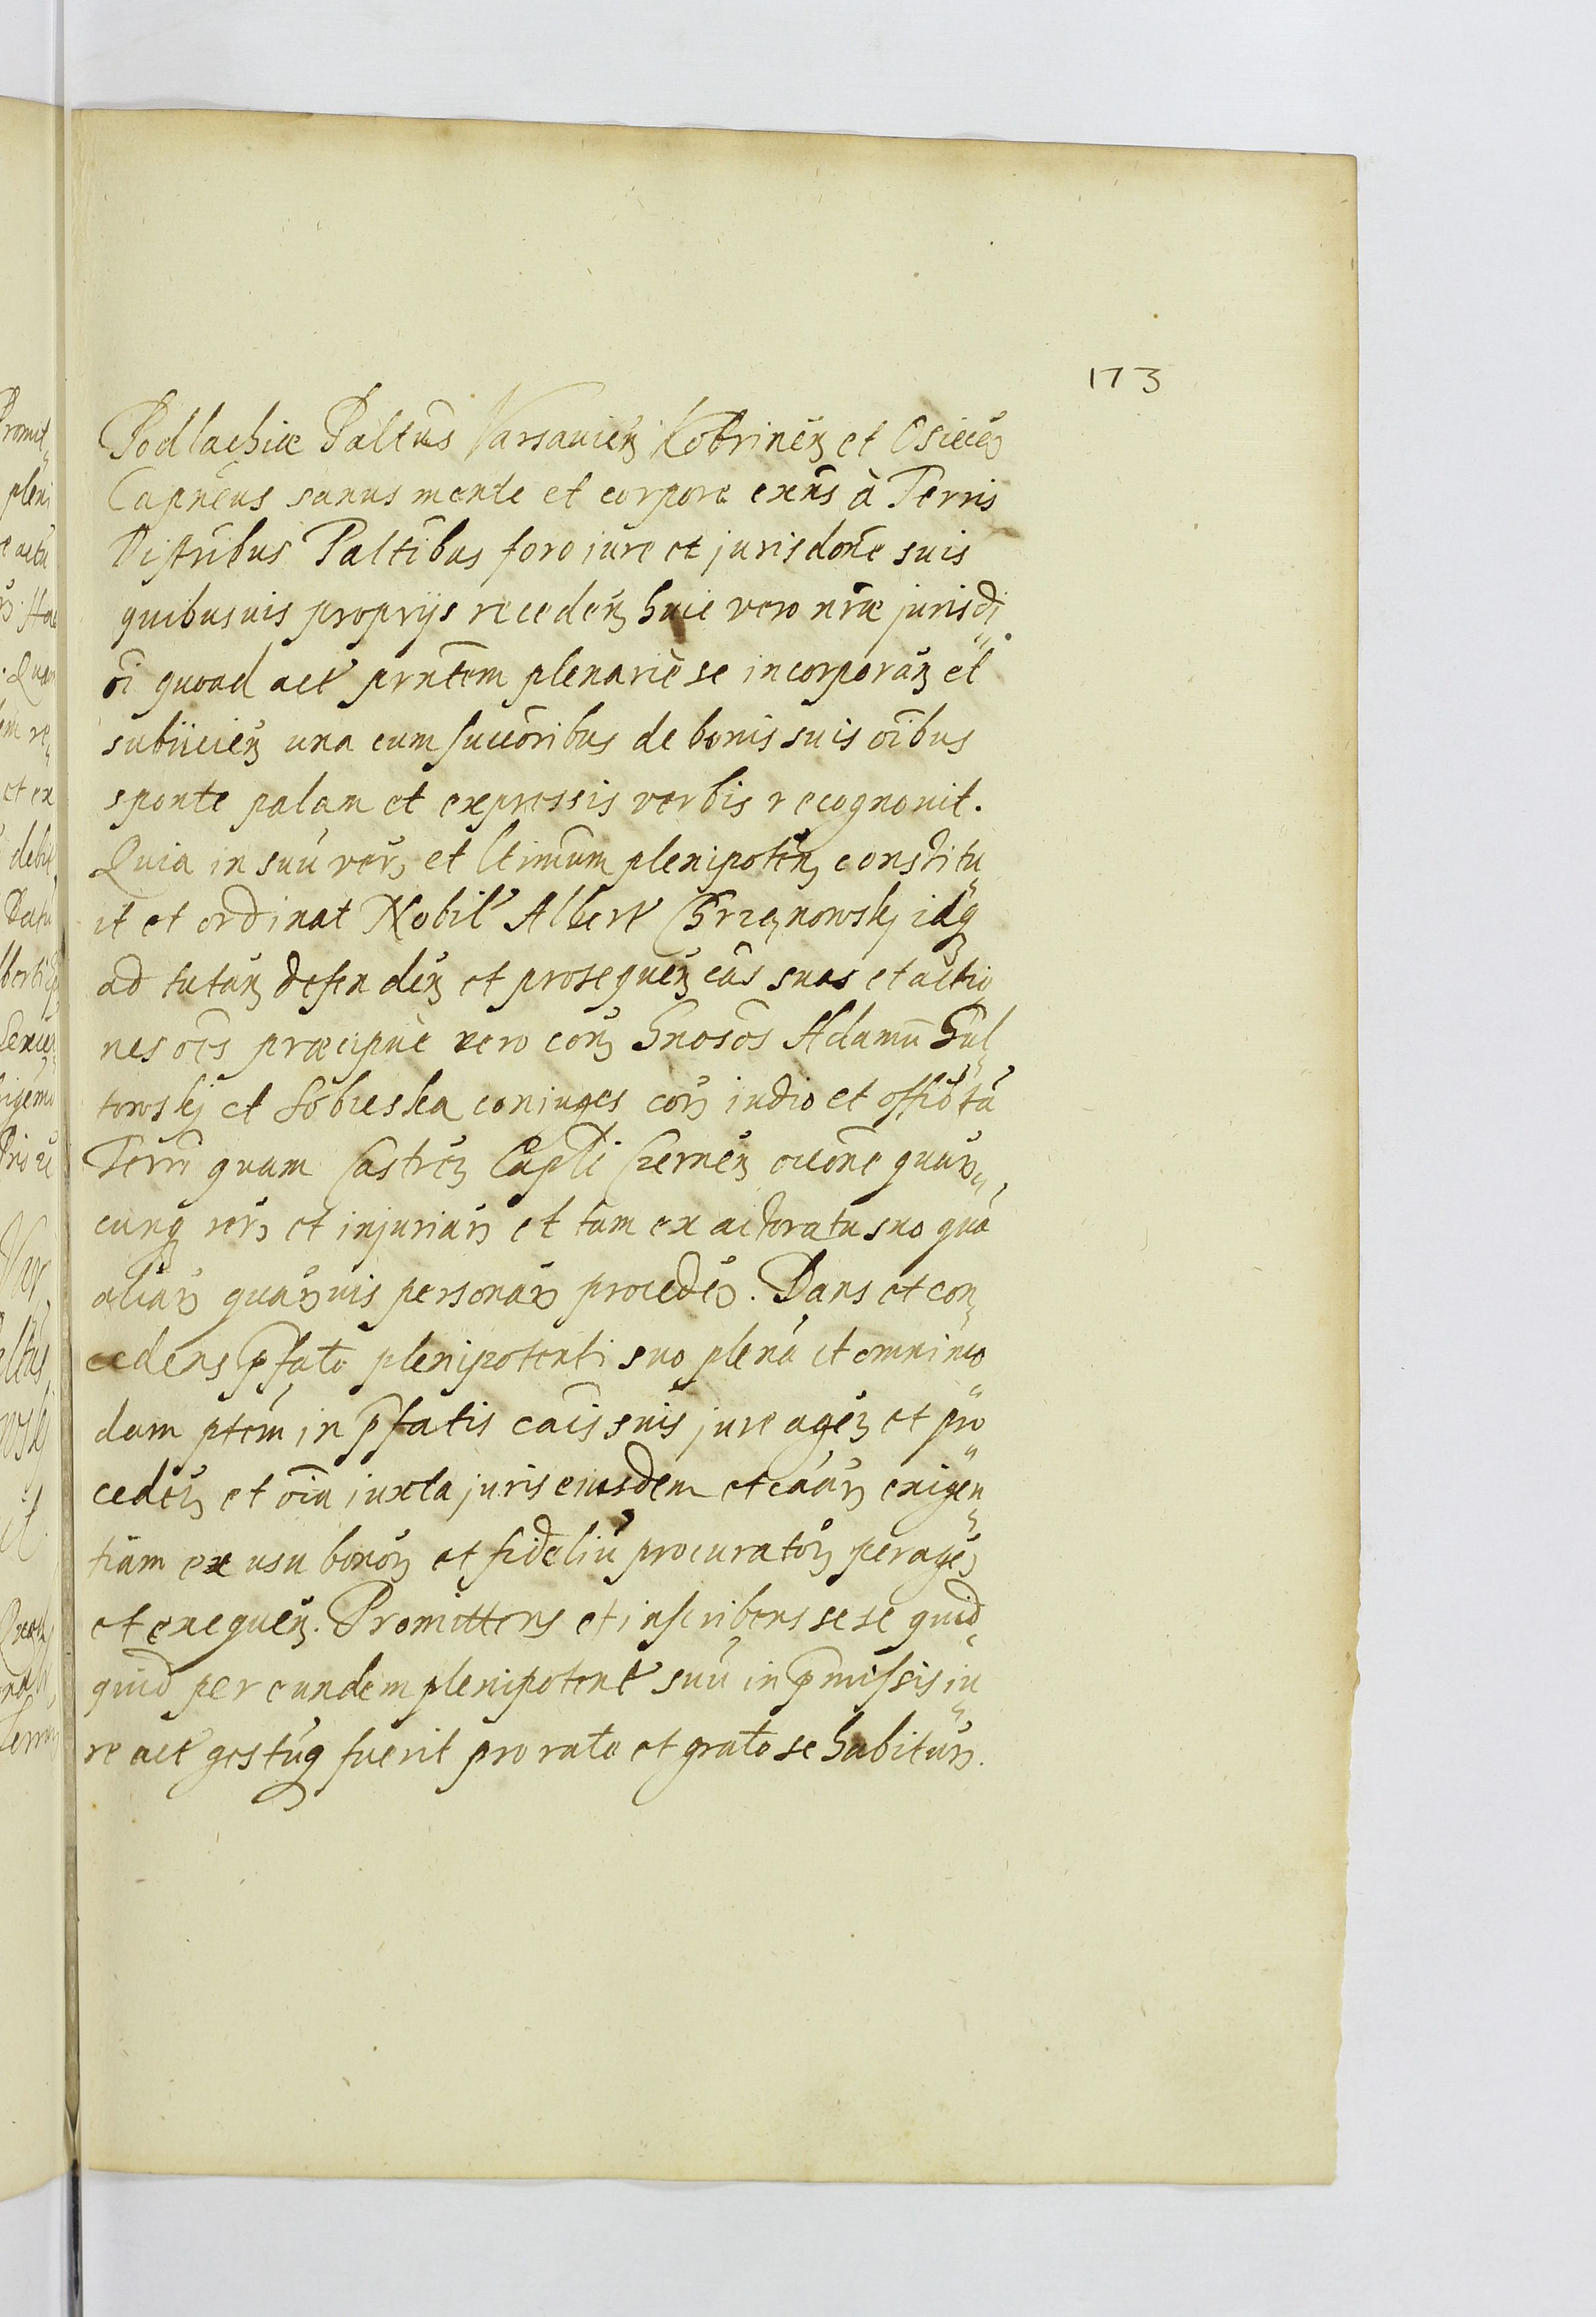 173
Podlachiæ Paltūs Varsavieñ Kobrineñ et Osiecēn
Capn̄eus sanus mente et corpore exn̄s à Terris
Distribus Paltībus foro iure et jurisdōne suis
quibusuis proprijs recedeñ huic vero nrāe jurisdi„
oī quoad act prn̄tem plenariè se incorporañ et
subiicieñ una cum succōribus de bonis suis oībus
sponte palam et expressis verbis recognouit.
Quia in suū verū et ltimūm plenipoteñ constitu„
it et ordinat Nobil Albert idq̨
ad tutañ defendeñ et prosequeñ cās suas et actio„
nes oēs præcipuè vero cōn Gnosōs Adamū Gul„
towskj et Sobieska coniuges corā iudio et offio tā
Terrī quam Castreñ Capti Czerneñ occōne quar„
cunq̨ rerū et injuriarū et tam ex actoratu suo quā
aliarū quarūuis personarū procedēn. Dans et con„
cedens p̄fato plenipotenti suo plenā et omnimo„
dam ptēm in p̄fatis caīs suis jure ageñ et pro„
cedeñ et oīa iuxta juris eiusdem et caārū exigen„
tiam ex usu bonorū et fideliū procuratorū perageñ
et exequeñ. Promittens et inscribens sese quid„
quid per eundem plenipotent suū in p̄missis iu„
re act gestūq̨ fuerit pro rato et grato se habiturū.